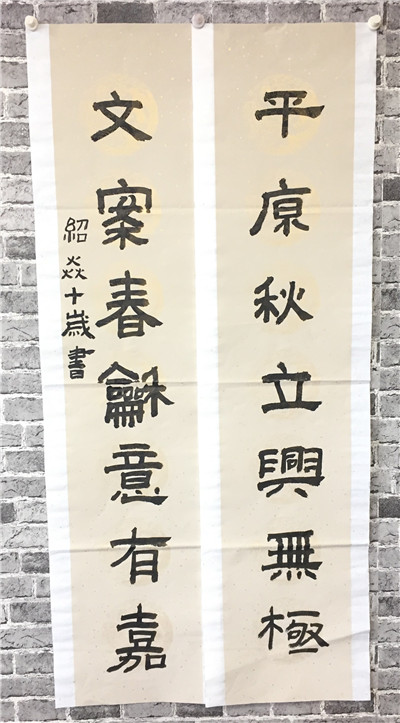 平原秋立興無極
文案春龢意有嘉
紹焱十歲書